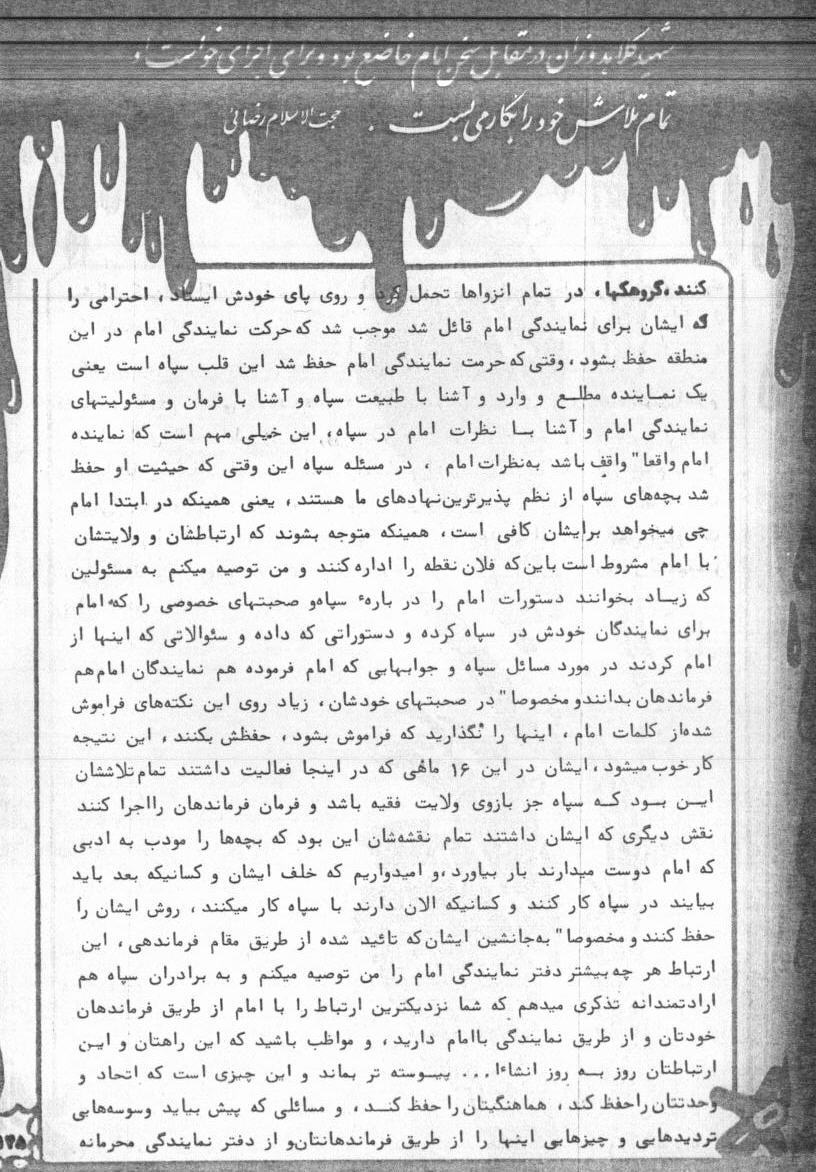 شهید کلاهدوزان در مقابل سخن امام خاضع بود و برای اجرای خواست او
تمام تلاش خود را بکار می بست . حجت الاسلام رضائی
کنند ،گروهکها، در تمام انزواها تحمل کرد و روی پای خودش ایستاد ، احترامی را
که ایشان برای نمایندگی امام قائل شد موجب شد که حرکت نمایندگی امام در این
منطقه حفظ بشود ، وقتی که حرمت نمایندگی امام حفظ شد این قلب سپاه است یعنی
یک نمـاینده مطلـع و وارد و آشنا با طبیعت سپاه و آشنا با فرمان و مسئولیتهای
نمایندگی امام و آشنا بـا نظرات امام در سپاه، این خیلی مهم است که نماینده
امام واقعا" واقف باشد به‌نظرات امام ، در مسئله سپاه این وقتی که حیثیت او حفظ
شد بچه‌های سپاه از نظم پذیرترین‌نهادهای ما هستند ، یعنی همینکه در ابتدا امام
چی میخواهد برایشان کافی است ، همینکه متوجه بشوند که ارتباطشان و ولایتشان
با امام مشروط است باین‌که فلان نقطه را اداره کنند و من توصیه میکنم به مسئولین
که زیـاد بخوانند دستورات امام را در بارهٔ سپاه‌و صحبتهای خصوصی را که امام
برای نمایندگان خودش در سپاه کرده و دستوراتی که داده و سئوالاتی که اینها از
امام کردند در مورد مسائل سپاه و جوابهایی که امام فرموده هم نمایندگان امام‌هم
فرماندهان بدانندو مخصوصا" در صحبتهای خودشان ، زیاد روی این نکته‌های فراموش
شده‌از کلمات امام ، اینها را نگذارید که فراموش بشود ، حفظش بکنند ، این نتیجه
کار خوب میشود ، ایشان در این ۱۶ ماهی که در اینجا فعالیت داشتند تمام تلاششان
ایـن بـود کـه سپاه جز بازوی ولایت فقیه باشد و فرمان فرماندهان رااجرا کنند
نقش دیگری که ایشان داشتند تمام نقشه‌شان این بود که بچه‌ها را مودب به ادبی
که امام دوست میدارند بار بیاورد ،و امیدواریم که خلف ایشان و کسانیکه بعد باید
بیایند در سپاه کار کنند و کسانیکه الان دارند با سپاه کار میکنند ، روش ایشان را
حفظ کنند و مخصوصا" به‌جانشین ایشان‌که تائید شده از طریق مقام فرماندهی ، این
ارتباط هر چه بیشتر دفتر نمایندگی امام را من توصیه میکنم و به برادران سپاه هم
ارادتمندانه تذکری میدهم که شما نزدیکترین ارتباط را با امام از طریق فرماندهان
خودتان و از طریق نمایندگی باامام دارید ، و مواظب باشید که این راهتان و ایـن
ارتباطتان روز بـه روز انشاءا... پیـوسته تر بماند و این چیزی است که اتحاد و
وحدتتان راحفظ کند ، هماهنگیتان را حفظ کنـد ، و مسائلی که پیش بیاید وسوسه‌هایی
تردیدهایی و چیزهایی اینها را از طریق فرماندهانتان‌و از دفتر نمایندگی محرمانه
۱۲۵